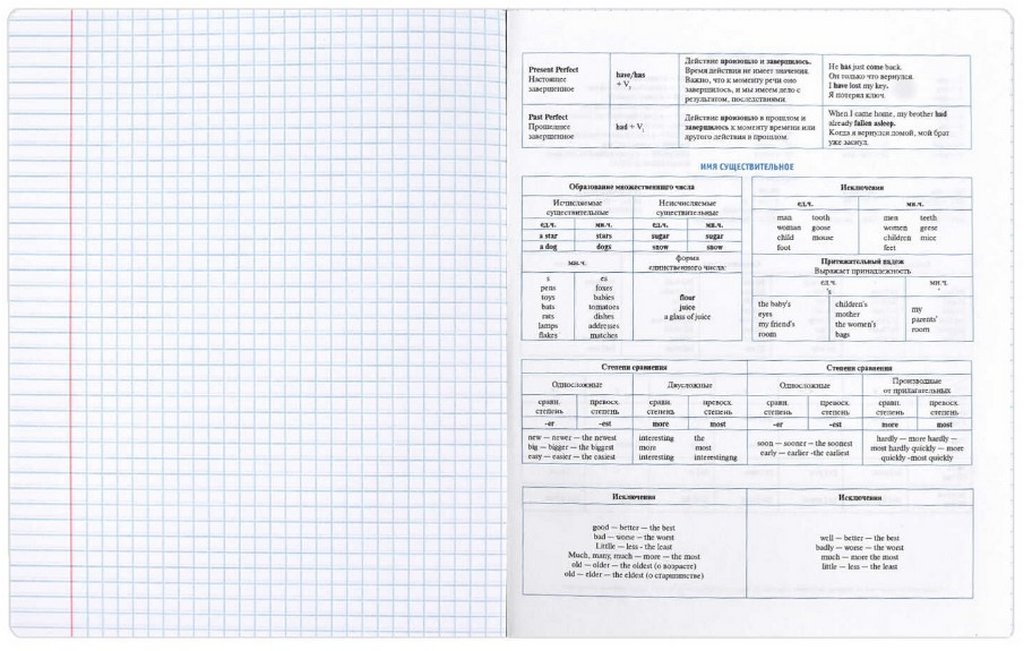 Present Perfect
Настоящее
завершенное
have/has
+ V₃
Действие произошло и завершилось.
Время действия не имеет значения.
Важно, что к моменту речи оно
завершилось, и мы имеем дело с
результатом, последствиями.
He has just come back.
Он только что вернулся.
I have lost my key.
Я потерял ключ.
Past Perfect
Прошедшее
завершенное
had + V₃
Действие произошло в прошлом и
завершилось к моменту времени или
другого действия в прошлом.
When I came home, my brother had
already fallen asleep.
Когда я вернулся домой, мой брат
уже заснул.
ИМЯ СУЩЕСТВИТЕЛЬНОЕ
Образование множественного числа
Исчисляемые
существительные
Неисчисляемые
существительные
ед.ч. мн.ч. ед.ч. мн.ч.
a star stars sugar sugar
a dog dogs snow snow
мн.ч.
форма
единственного числа:
s es
pens foxes
toys babies
bats tomatoes
rats dishes
lamps addresses
flakes matches
flour
juice
a glass of juice
Исключения
ед.ч. мн.ч.
man tooth men teeth
woman goose women geese
child mouse children mice
foot feet
Притяжательный падеж
Выражает принадлежность
ед.ч. мн.ч.
's '
the baby's
eyes
my friend's
room
children's
mother
the women's
bags
my
parents'
room
Степени сравнения Степени сравнения
Односложные Двусложные Односложные
Производные
от прилагательных
сравн. превосх. сравн. превосх. сравн. превосх. сравн. превосх.
степень степень степень степень степень степень степень степень
-er -est more most -er -est more most
new — newer — the newest
big — bigger — the biggest
easy — easier — the easiest
interesting the
more most
interesting interestingng
soon — sooner — the soonest
early — earlier -the earliest
hardly — more hardly —
most hardly quickly — more
quickly -most quickly
Исключения Исключения
good — better — the best
bad — worse — the worst
Littlle — less - the least
Much, many, much — more — the most
old — older — the oldest (о возрасте)
old — elder — the eldest (о старшинстве)
well — better — the best
badly — worse — the worst
much — more the most
little — less — the least